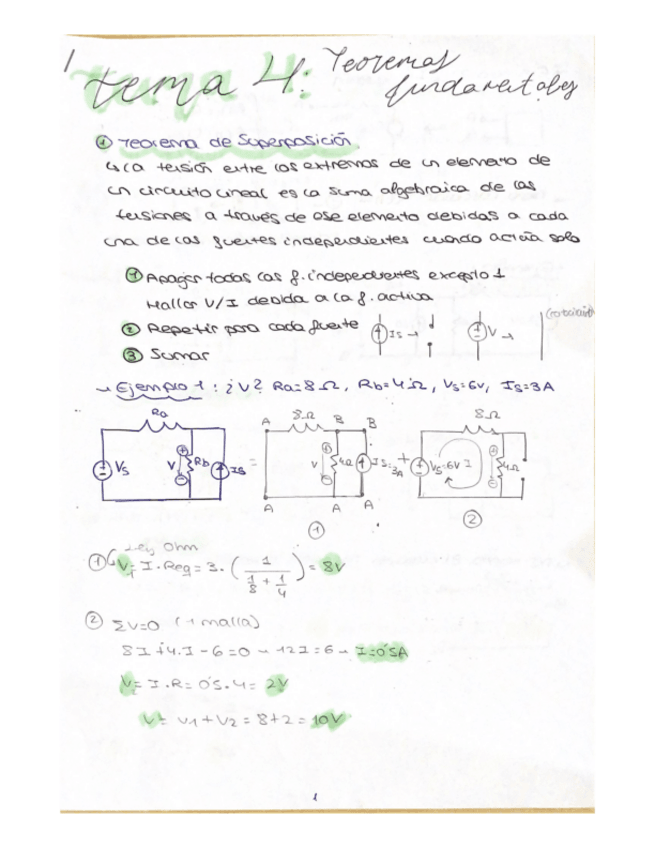 1
tema 4: Teoremas
fundamentales
① Teorema de Superposición
↳ La tensión entre los extremos de un elemento de
un circuito lineal es la suma algebraica de las
tensiones a través de ese elemento debidas a cada
una de las fuentes independientes cuando actúa solo
① Apagar todas las f. independientes excepto 1
Hallar V/I debida a la f. activa
② Repetir para cada fuente
Is → V →
③ Sumar
~ Ejemplo 1: ¿V? Ra=8Ω, Rb=4Ω, Vs=6V, Is=3A
Ra 8Ω 8Ω
A B B
Vs V Rb Is = V 4Ω Is=3A + Vs=6V I 4Ω
A A A
① ②
① ↳ Ley Ohm
V₁ = I · Req = 3 · (1 / (1/8 + 1/4)) = 8V
② ΣV=0 (1 malla)
8I+4·I-6=0 → 12I=6 → I=0'5A
V₂ = I·R = 0'5·4 = 2V
V = V1 + V2 = 8+2 = 10V
1